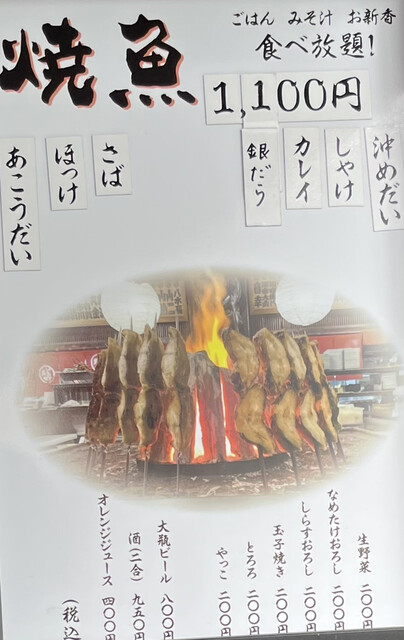 焼魚
ごはん みそ汁 お新香
食べ放題!
1,100円
沖めだい
しゃけ
カレイ
銀だら
さば
ほっけ
あこうだい
生野菜 二〇〇円
なめたけおろし 二〇〇円
しらすおろし 二〇〇円
玉子焼き 二〇〇円
とろろ 二〇〇円
やっこ 二〇〇円
大瓶ビール 八〇〇円
酒(二合) 九五〇円
オレンジジュース 四〇〇円
(税込